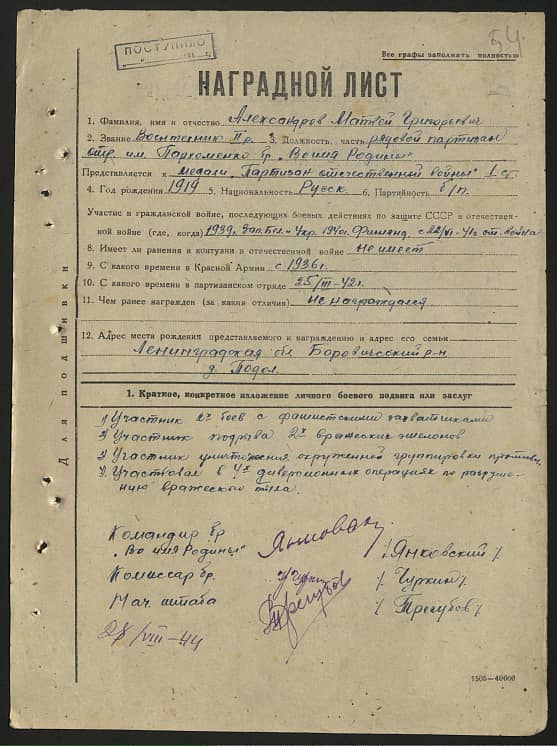 54
ПОСТУПИЛО
Все графы заполнять полностью
НАГРАДНОЙ ЛИСТ
1. Фамилия, имя и отчество Александров Матвей Григорьевич
2. Звание Воентехник II р. 3. Должность, часть рядовой партизан
отр. им. Пархоменко бр. „Во имя Родины"
Представляется к медали „Партизан отечественной войны" I ст.
4. Год рождения 1919 5. Национальность Русск. 6. Партийность б/п.
Участие в гражданской войне, последующих боевых действиях по защите СССР и отечествен-
ной войне (где, когда) 1939, Зап. Бел. - Укр. 1940г. Финлянд. с 22/VI-41г. от. война
8. Имеет ли ранения и контузии в отечественной войне Не имеет
9. С какого времени в Красной Армии с 1936г.
10. С какого времени в партизанском отряде 25/III-42г.
11. Чем ранее награжден (за какия отличия) Не награждался
12. Адрес места рождения представляемого к награждению и адрес его семьи
Ленинградская обл. Боровичский р-н
д. Подол.
Для подшивки
1. Краткое, конкретное изложение личного боевого подвига или заслуг
1) Участник 2х боев с фашистскими захватчиками
2) Участник подрыва 2х вражеских эшелонов
3) Участник уничтожения окруженной группировки противн.
4) Участвовал в 4х диверсионных операциях по разруше-
нию вражеского тыла.
Командир бр.
„Во имя Родины" /Янковский/
Комиссар бр. /Чуркин/
Нач. штаба Трегубов /Трегубов/
28/VIII-44
1505—40000